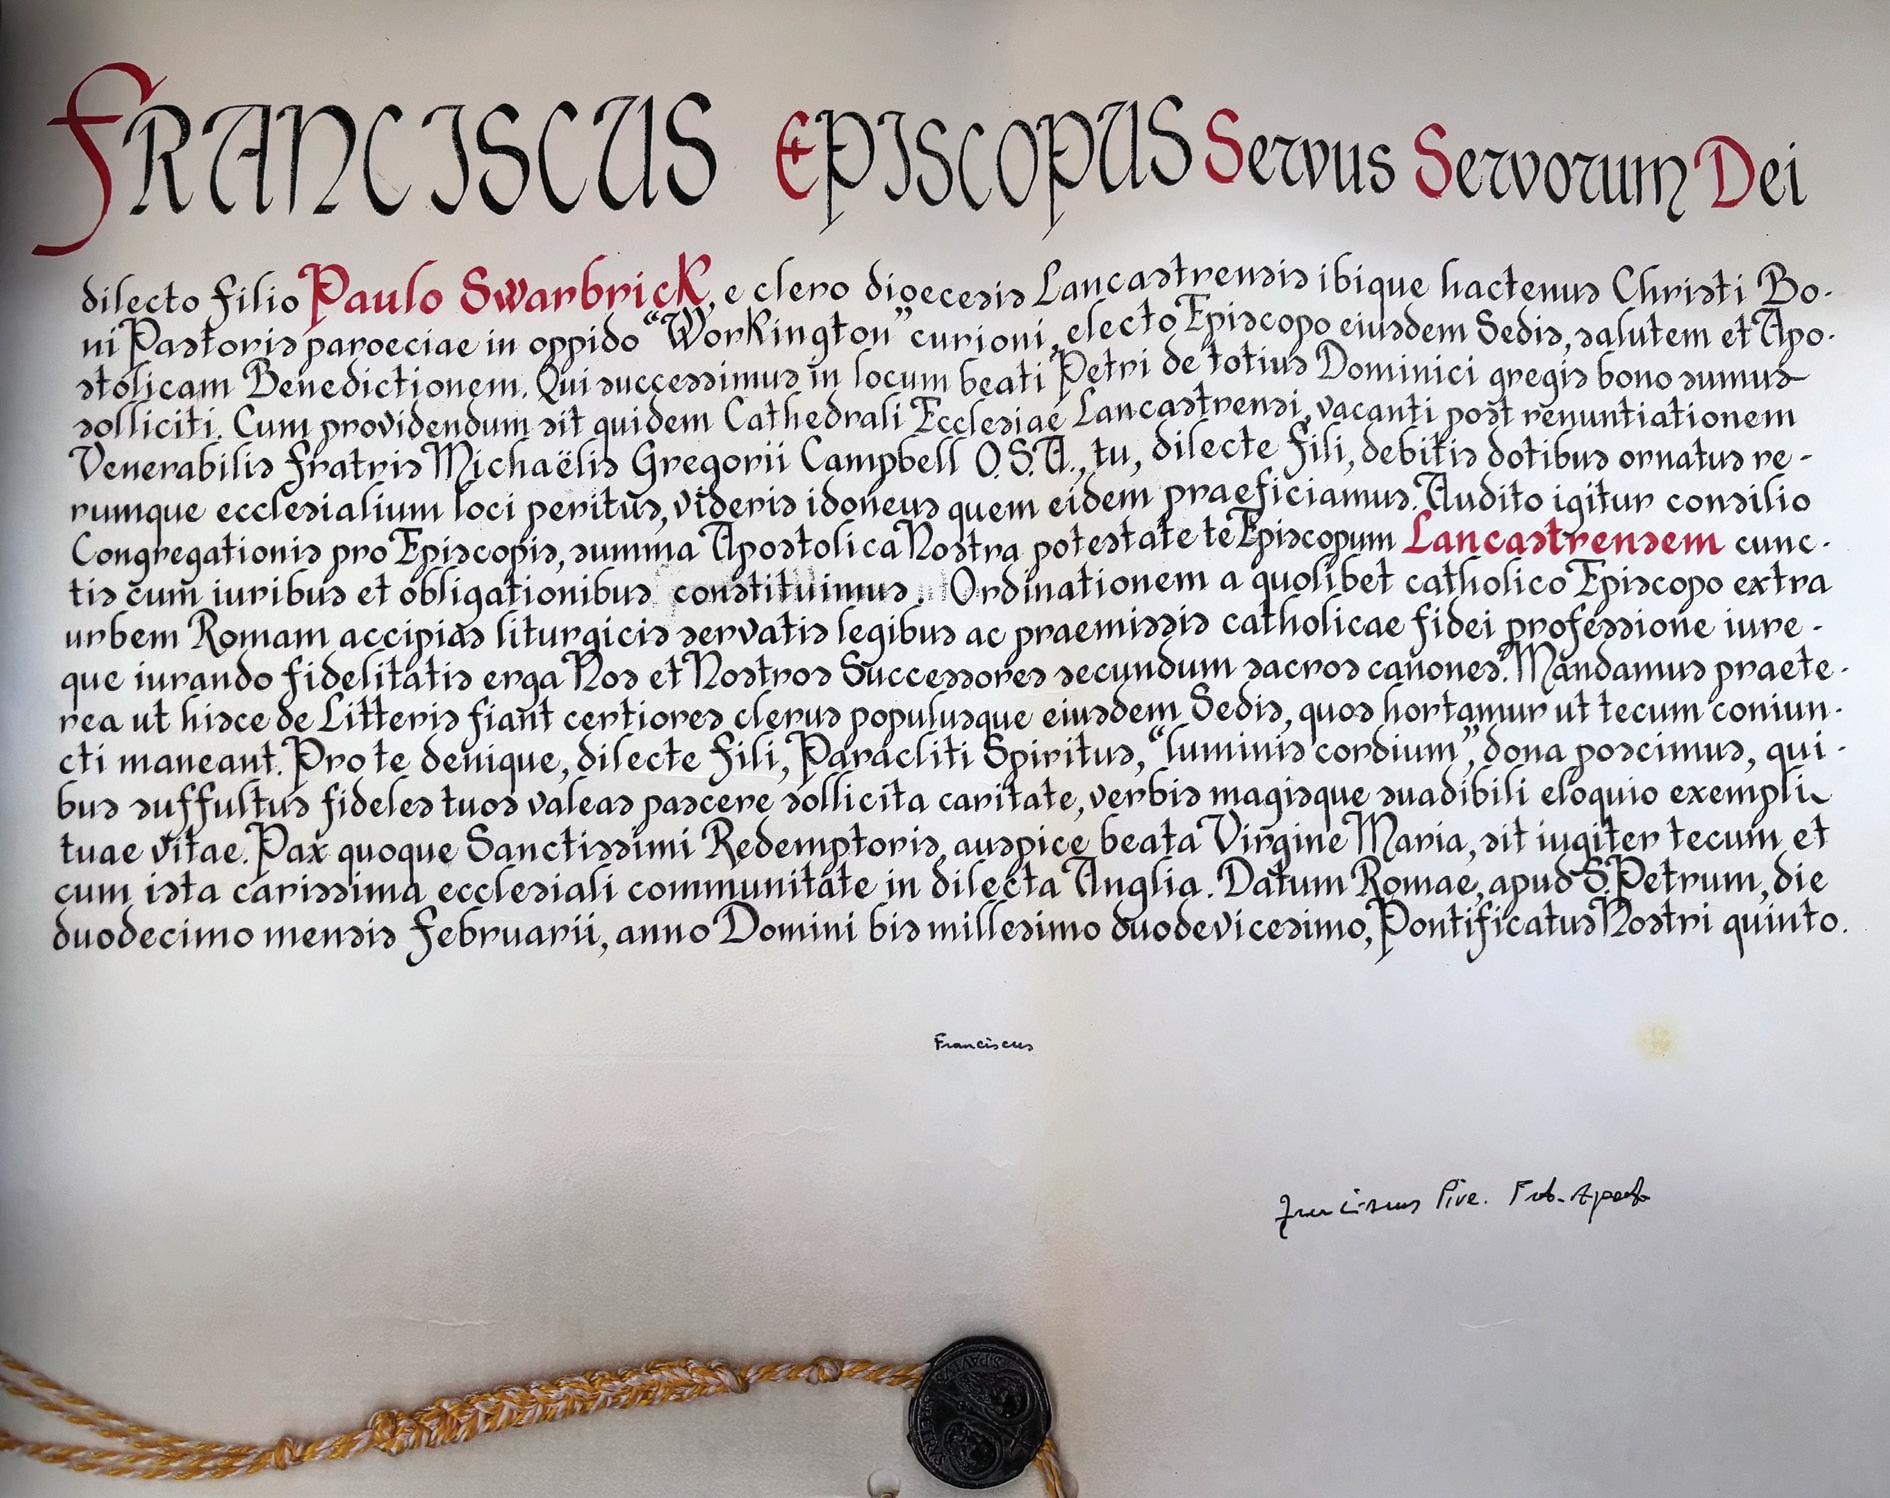 FRANCISCUS EPISCOPUS Servus Servorum Dei
dilecto Filio Paulo Swarbrick, e clero dioecesis Lancastrensis ibique hactenus Christi Bo-
ni Pastoris paroeciae in oppido “Workington” curioni, electo Episcopo eiusdem Sedis, salutem et Apo-
stolicam Benedictionem. Qui successimus in locum beati Petri de totius Dominici gregis bono sumus
solliciti. Cum providendum sit quidem Cathedrali Ecclesiae Lancastrensi, vacanti post renuntiationem
Venerabilis Fratris Michaëlis Gregorii Campbell O.S.A., tu, dilecte Fili, debitis dotibus ornatus re-
rumque ecclesialium loci peritus, videris idoneus quem eidem praeficiamus. Audito igitur consilio
Congregationis pro Episcopis, summa Apostolica Nostra potestate te Episcopum Lancastrensem cunc-
tis cum iuribus et obligationibus constituimus. Ordinationem a quolibet catholico Episcopo extra
urbem Romam accipias liturgicis servatis legibus ac praemissis catholicae fidei professione iure-
que iurando fidelitatis erga Nos et Nostros Successores secundum sacros canones. Mandamus praete-
rea ut hisce de Litteris fiant certiores clerus populusque eiusdem Sedis, quos hortamur ut tecum coniun-
cti maneant. Pro te denique, dilecte Fili, Paracliti Spiritus, “luminis cordium”, dona poscimus, qui-
bus suffultus fideles tuos valeas pascere sollicita caritate, verbis magisque suadibili eloquio exempli
tuae vitae. Pax quoque Sanctissimi Redemptoris, auspice beata Virgine Maria, sit iugiter tecum et
cum ista carissima ecclesiali communitate in dilecta Anglia. Datum Romae, apud S. Petrum, die
duodecimo mensis Februarii, anno Domini bis millesimo duodevicesimo, Pontificatus Nostri quinto.
Franciscus
Franciscus Pive.